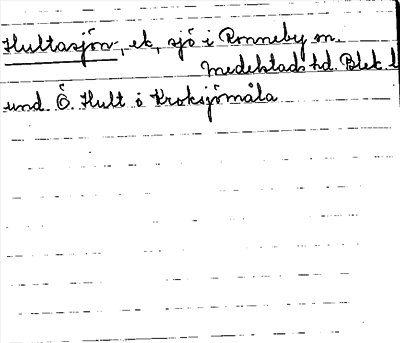 Hultasjön, ek, sjö i Ronneby sn.
Medelstads hd. Blek. l
und. Ö. Hult o Kroksjömåla